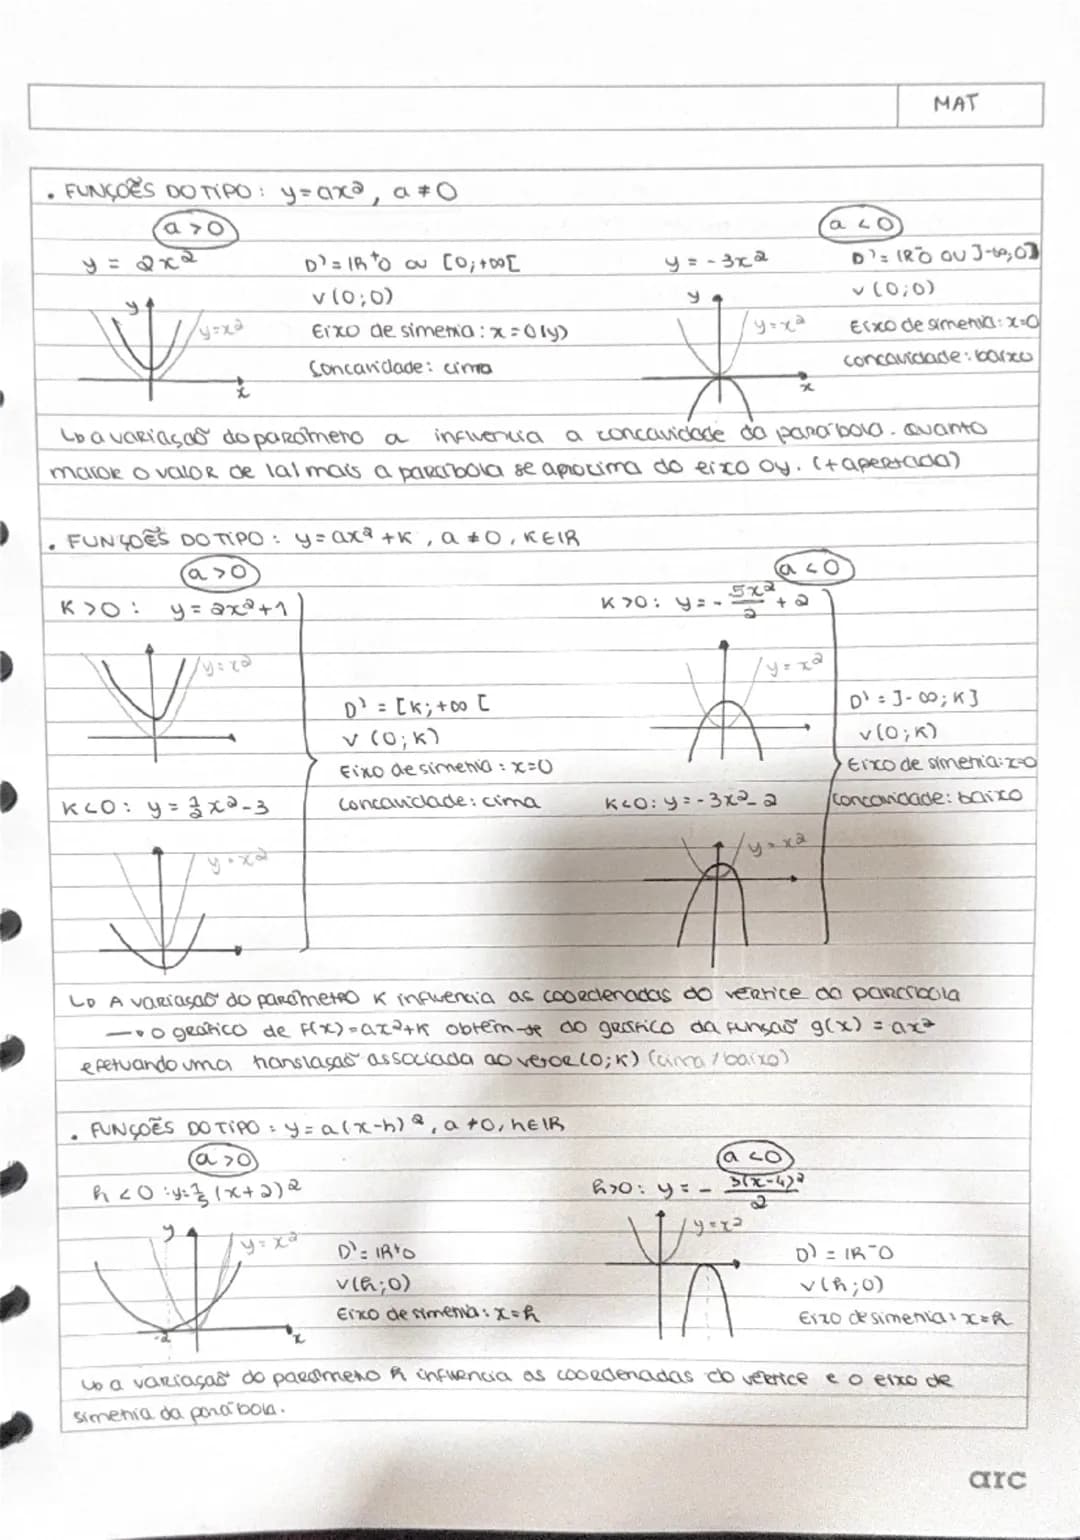 MAT
• FUNÇOẼS DO TIPO: y=ax², a ≠ 0
a > 0
a < 0
y = 2x²
D' = IR⁺0 ou [0;+∞[
V (0;0)
Eixo de simetria: x=0 (y)
Concavidade: cima
y
y=x²
x
y = -3x²
D' = IR⁻0 OU ]-∞;0]
V (0;0)
Eixo de simetria: x=0
concavidade: baixo
y
y=x²
x
↳ a variação do parâmetro a influencia a concavidade da parábola. Quanto
maior o valor de |a| mais a parábola se aproxima do eixo oy. (+ apertada)
• FUNÇOẼS DO TIPO: y=ax²+K, a ≠ 0, K∈IR
a > 0
a < 0
K > 0: y = 2x²+1
y=x²
K < 0: y = 1/2 x²-3
y=x²
D' = [K;+∞[
V (0;K)
Eixo de simetria: x=0
Concavidade: cima
K > 0: y = - 5x²/2 + 2
y=x²
K < 0: y = -3x²-2
y=x²
D' = ]-∞;K]
V (0;K)
Eixo de simetria: x=0
Concavidade: baixo
↳ A variação do parâmetro K influencia as coordenadas do vértice da parábola
→ o gráfico de f(x)=ax²+K obtém-se do gráfico da função g(x) = ax²
efetuando uma translação associada ao vetor (0;K) (cima / baixo)
• FUNÇOẼS DO TIPO: y = a(x-h)², a ≠ 0, h∈IR
a > 0
a < 0
h < 0: y= 1/5 (x+2)²
y
y=x²
-2
x
D' = IR⁺0
V(h;0)
Eixo de simetria: x=h
h > 0: y = - 3(x-4)²/2
y=x²
D' = IR⁻0
V(h;0)
Eixo de simetria: x=h
↳ a variação do parâmetro h influencia as coordenadas do vértice e o eixo de
simetria da parábola.
arc